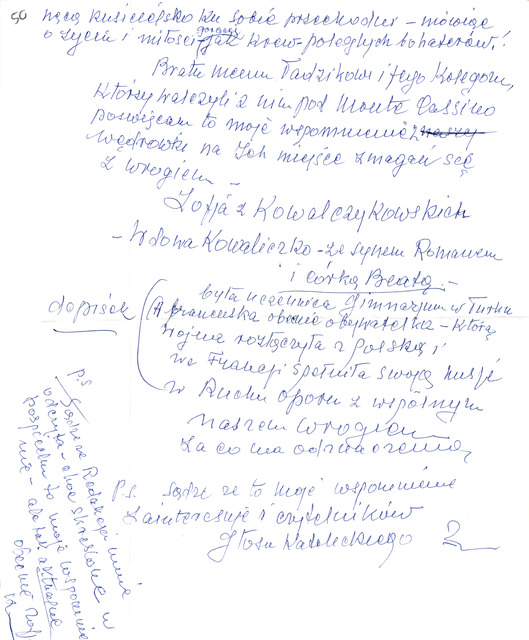 50
nącą kusicielsko ku sobie przechodniu – mówiąc
o życiu i miłości gorącej jak krew poległych bohaterów!
Bratu memu Tadzikowi i Jego Kolegom,
którzy walczyli z nim pod Monte Cassino
poświęcam to moje wspomnienie z naszej
wędrówki na Ich miejsce zmagań się
z wrogiem –
Zofja z Kowalczykowskich
– Wdowa Kowaliczko – ze synem Romanem
i córką Beatą. –
dopisek
(była uczennica Gimnazjum w Turku
A francuska obecnie obywatelka – którą
wojna rozłączyła z Polską i
we Francji spełniła swoją misję
w Ruchu oporu z wspólnym
naszem wrogiem
za co ma odznaczenia,
p.s. Sądzę że to moje wspomnienie
zainteresuje i czytelników
Głosu
p.s. Sądzę że Redakcja mnie
odczyta – choć skreślone w
pospiechu to moje wspomnienie
nie – ale tak aktualne
obecnie